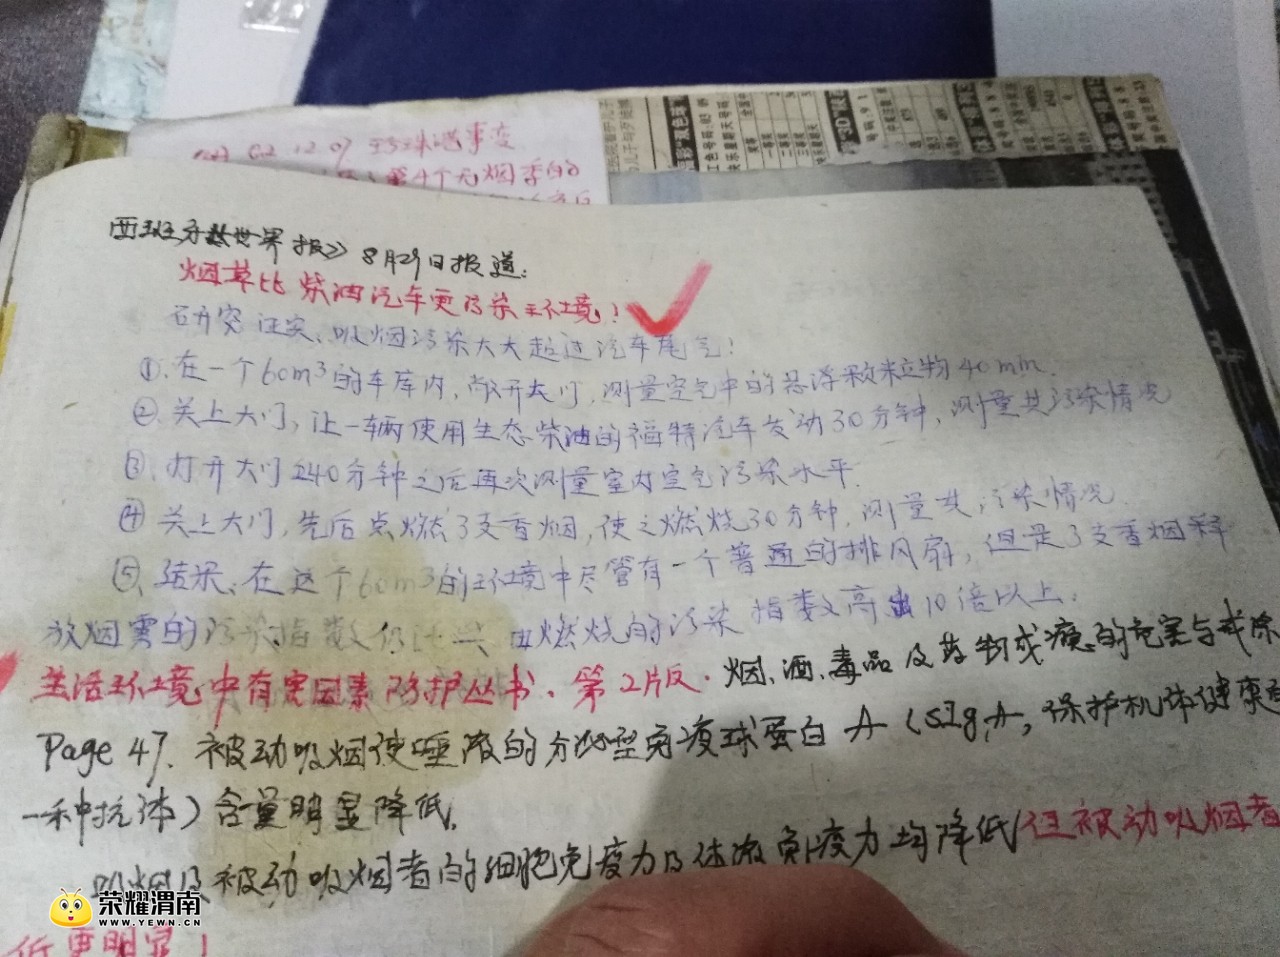 遇事变
第4个无烟季的
西班牙《世界报》8月29日报道:
烟草比柴油汽车更污染环境!
研究证实、吸烟污染大大超过汽车尾气!
①.在一个60m³的车库内,敞开大门,测量空气中的悬浮颗粒物40min.
②.关上大门,让一辆使用生态柴油的福特汽车发动30分钟,测量其污染情况
③.打开大门240分钟之后再次测量室内空气污染水平.
④关上大门,先后点燃3支香烟,使之燃烧30分钟,测量其污染情况.
⑤.结果:在这个60m³的环境中尽管有一个普通的排风扇,但是3支香烟释
放烟雾的污染指数仍 燃烧的污染指数高出10倍以上.
生活环境中有害因素防护丛书、第2版.烟、酒、毒品及药物成瘾的危害与戒除
Page 47. 被动吸烟使唾液的分泌型免疫球蛋白A(SIgA,保护机体健康
一种抗体)含量明显降低.
吸烟及被动吸烟者的细胞免疫力及体液免疫力均降低(但被动吸烟者
低更明显!
荣耀渭南
WWW.YEWN.CN